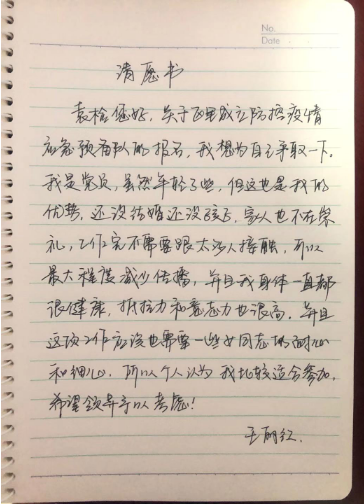 No.
Date
请愿书
袁检您好，关于正式成立防控疫情
应急预备队的报名，我想为自己争取一下。
我是党员，虽然年轻了些，但这也是我的
优势，还没结婚还没孩子，家人也不在
礼，工作完不需要跟太多人接触，所以
最大程度减少传播，并且我身体一直都
很健康，抵抗力和意志力也很高。并且
这项工作应该也需要一些女同志的耐心
和细心。所以个人认为我比较适合参加，
希望领导予以考虑！
王丽红.